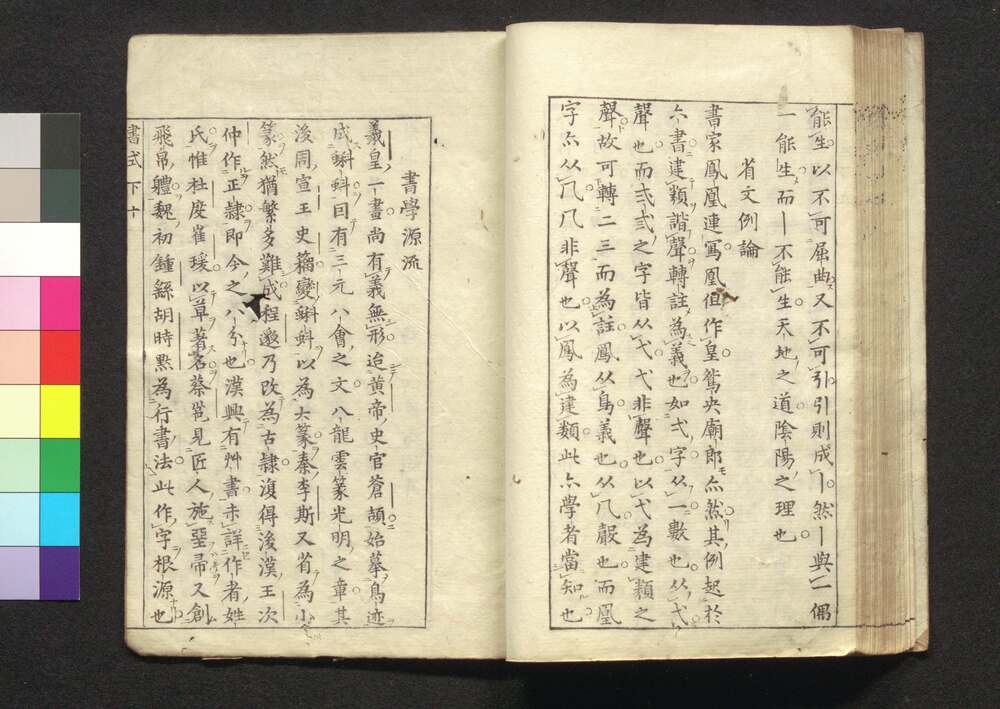 能生以不可屈曲又不可引引則成亅然丨與一偶
一能生而丨不能生天地之道陰陽之理也
省文例論
書家鳳凰連寫凰但作皇鴛央廟郎亦然其例起於
六書建類諧聲轉註為義也如弌字从一數也从弋
聲也而弍弎之字皆从弋弋非聲也以弋為建類之
聲故可轉二三而為註鳳从鳥義也从几聲也而凰
字亦从几几非聲也以鳳為建類此亦學者當知也
書學源流
羲皇一畫尚有義無形迨黃帝史官蒼頡始摹鳥迹
成蝌蚪曰有三元八會之文八龍雲篆光明之章其
後周宣王史籀變蝌蚪以為大篆秦李斯又省為小
篆然猶繁多難成程邈乃改為古隸復得後漢王次
仲作正隸即今之八分也漢興有艸書未詳作者姓
氏惟杜度崔瑗以草著名蔡邕見匠人施堊帚又創
飛帛體魏初鍾繇胡時㸃為行書法此作字根源也
書式 下 十